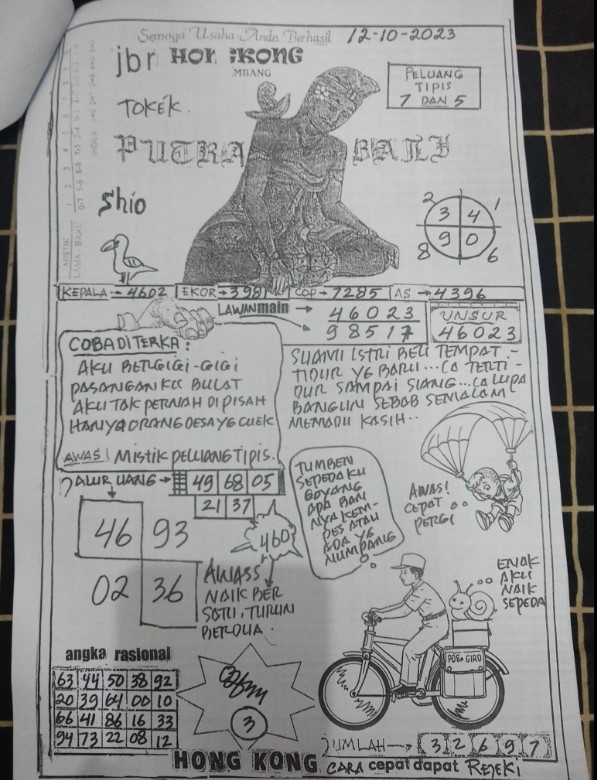 Semoga Usaha Anda Berhasil 12-10-2023
jbr HONGKONG
MBANG
PELUANG
TIPIS
7 DAN 5
TOKEK.
PUTRA BALI
Shio
2 1
3 4
9 0
8 6
KEPALA → 4602 EKOR → 3981 COP → 7285 AS → 4396
LAWAN main → 46023
98517
UNSUR
46023
COBA DITERKA:
AKU BERGIGI-GIGI
PASANGANKU BULAT
AKU TAK PERNAH DIPISAH
HANYA ORANG DESA YG CUEK
AWAS! MISTIK PELUANG TIPIS.
SUAMI ISTRI BELI TEMPAT -
TIDUR YG BARU...CA TERTI-
DUR SAMPAI SIANG...CA LUPA
BANGUN SEBAB SEMALAM
MEMADU KASIH..
JALUR UANG → 49 68 05
21 37
46 93
02 36
460
AWASS
NAIK BER
SATU, TURUN
BERDUA.
TUMBEN
SEPEDAKU
GOYANG
APA BAN
NYA KEM-
PES ATAU
ADA YG
NUMPANG
AWAS!
CEPAT
PERGI
ENAK
AKU
NAIK
SEPEDA
POS & GIRO
angka rasional
63 44 50 38 92
20 39 64 00 10
66 41 86 16 33
94 73 22 08 12
3
HONG KONG
JUMLAH → 3 2 6 9 7
CARA cepat dapat REJEKI